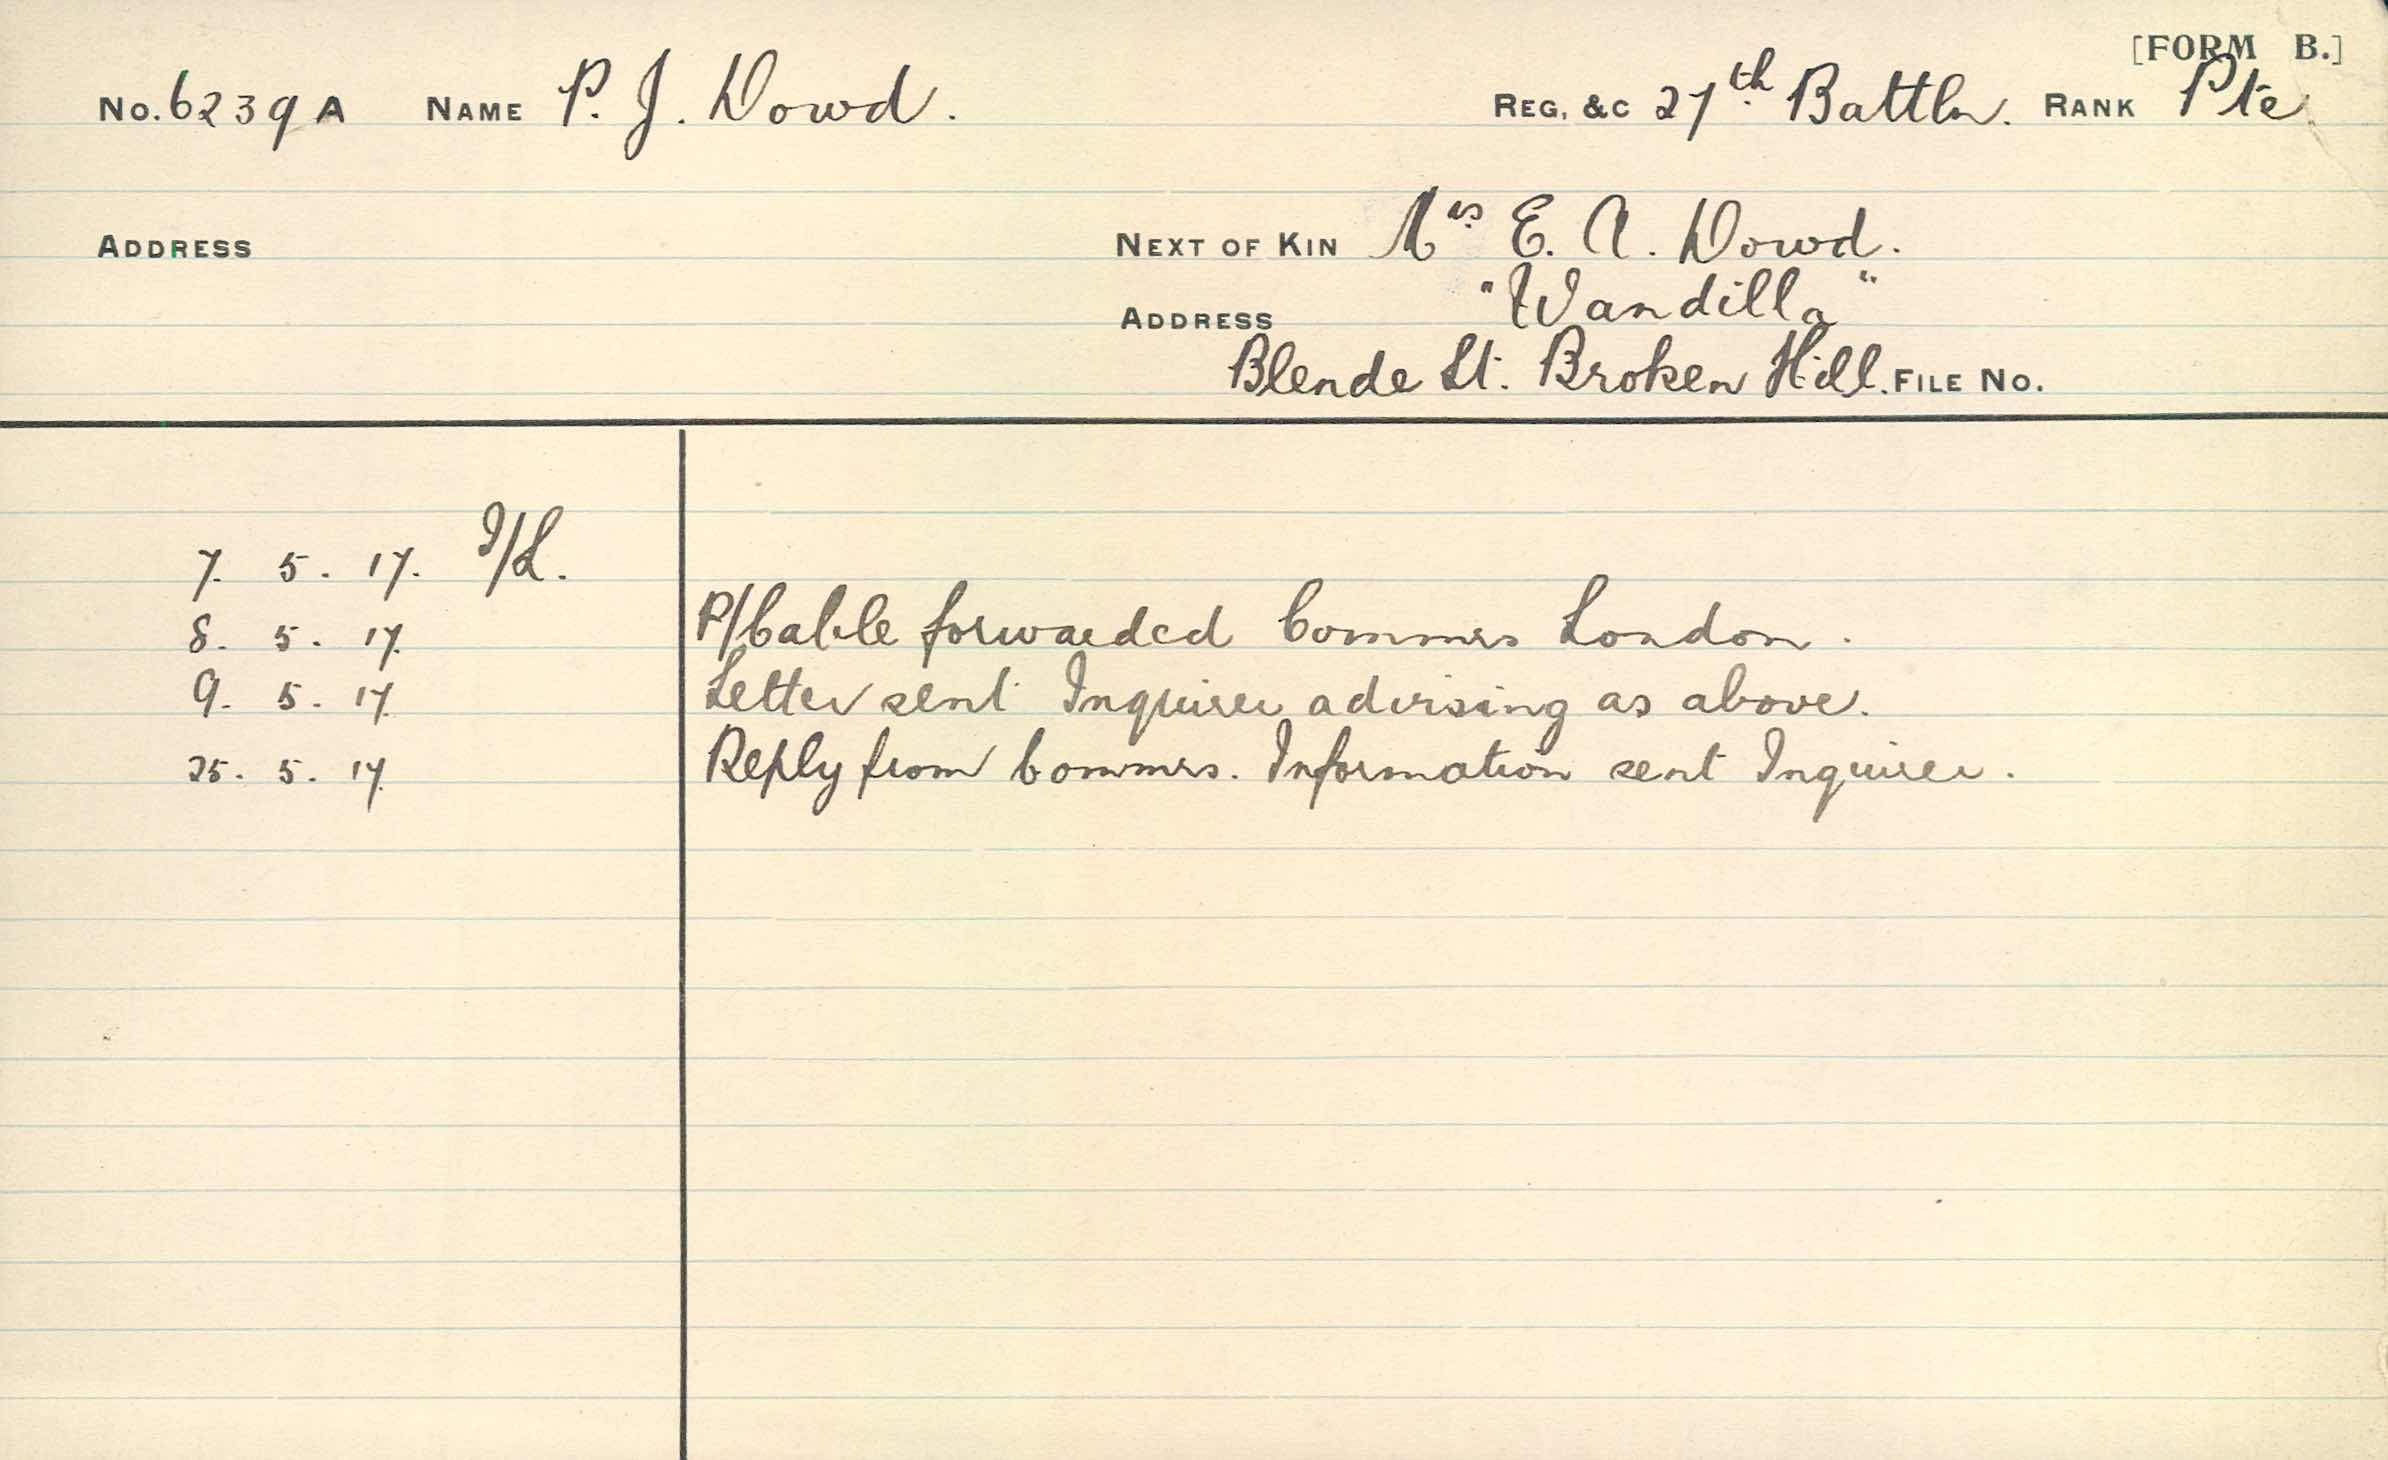 [FORM B.]
No. 6239 A NAME P. J. Dowd. REG, &C 27th Battln. RANK Pte
ADDRESS NEXT OF KIN Mrs E. A. Dowd.
ADDRESS "Wandilla"
Blende St. Broken Hill. FILE No.
7. 5. 17. I/L.
8. 5. 17. P/Cable forwarded Commrs London.
9. 5. 17. Letter sent Inquirer advising as above.
25. 5. 17. Reply from Commrs. Information sent Inquirer.